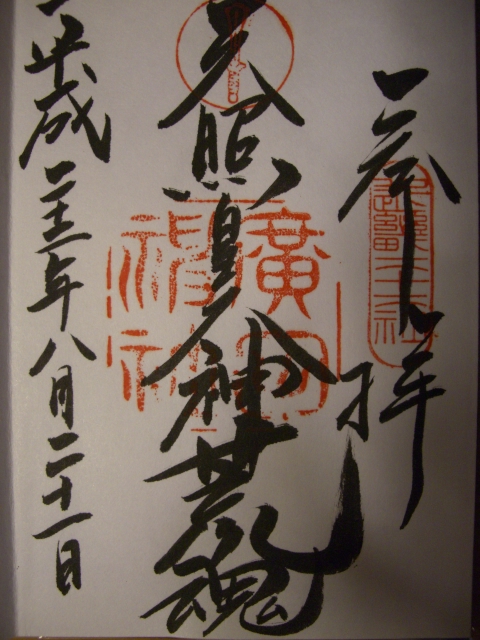 奉拝
天照皇大神荒魂
廣田神社
平成二十三年八月二十一日